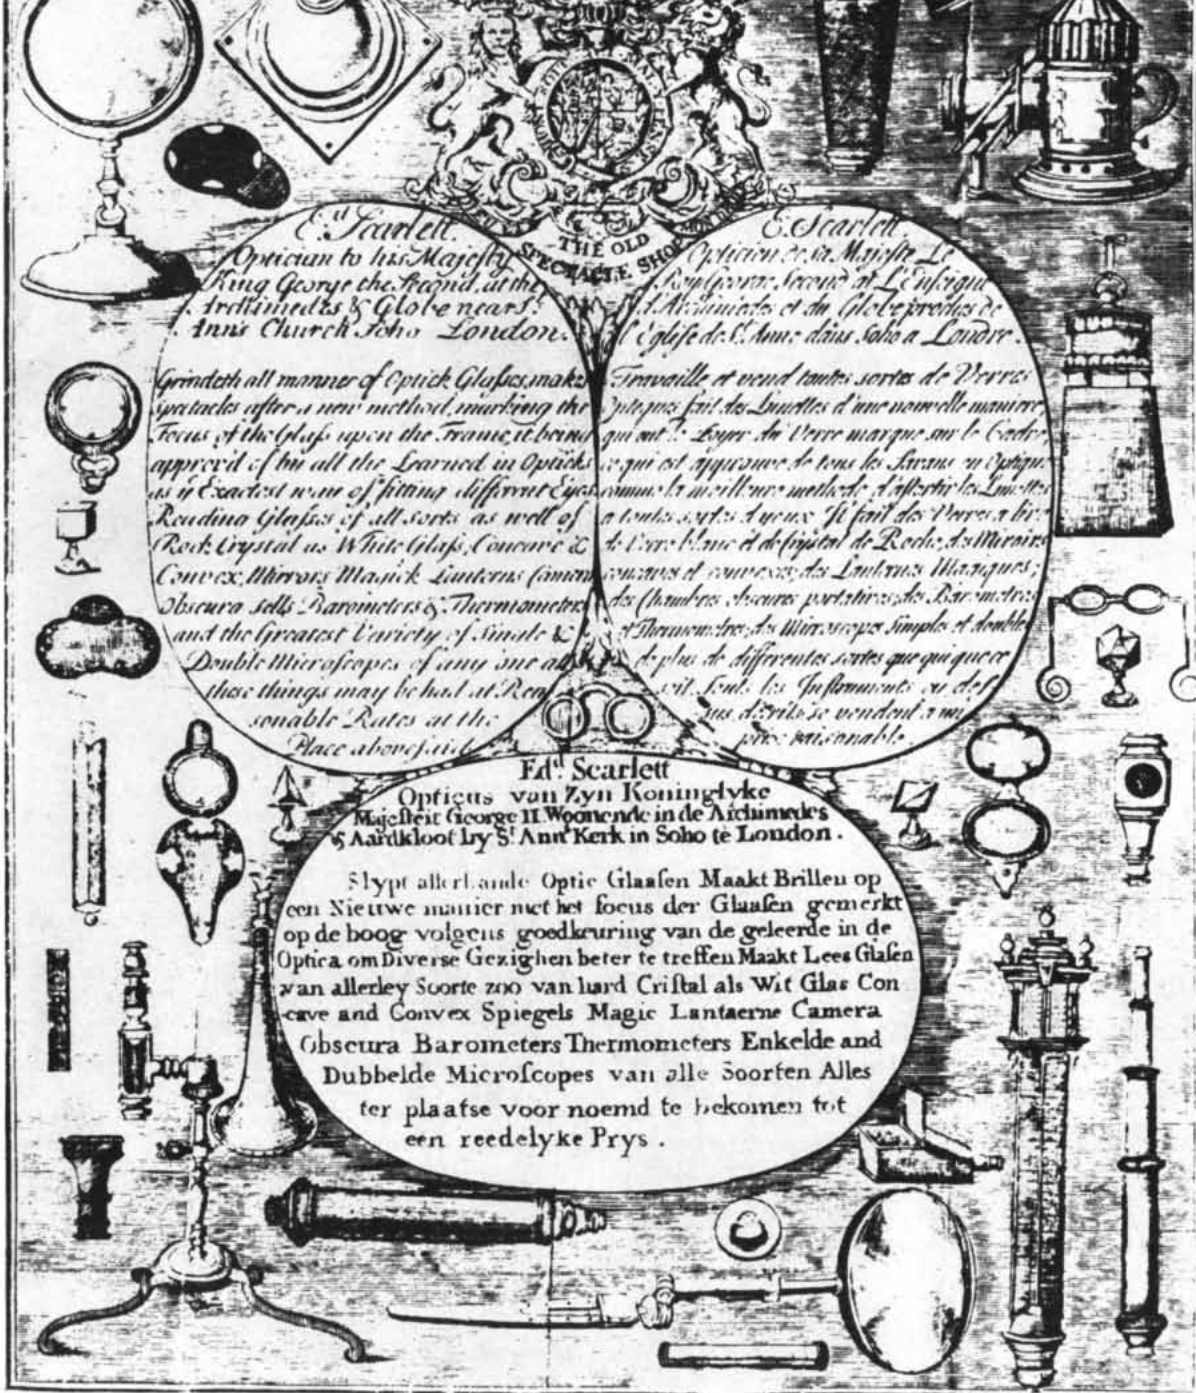 THE OLD
SPECTACLE SHOP
E.d Scarlett.
Optician to his Majesty
King George the Second, at the
Archimedes & Globe near St.
Ann's Church Soho London.
Grindeth all manner of Optick Glaſses, makes
Spectacles after a new method, marking the
Focus of the Glaſs upon the Frame, it being
approv'd of by all the Learned in Opticks
as ye Exactest way of fitting different Eyes
Reading Glaſses of all sorts as well of
Rock Crystal as White Glaſs, Concave &
Convex, Mirrors Magick Lanterns Camera
Obscura sells Barometers & Thermometers
and the Greatest Variety of Single &
Double Microſcopes of any one all
these things may be had at Rea
sonable Rates at the
Place abovesaid
E. Scarlett
Opticien de sa Majeste Le
Roy George Second at L'Enseigne
d'Archimedes et du Globe proches de
l'Egliſe de St. Anne dans Soho a Londre.
Travaille et vend toutes sortes de Verres
Optiques fait des Lunettes d'une nouvelle maniere
qui ont le Foyer du Verre marque sur le Cadre,
ce qui est approuve de tous les Savans en Optique
comme la meilleure methode d'assortir les Lunettes
a toutes sortes d'yeux Il fait des Verres a lire
de Verre blanc et de Crystal de Roche, des Miroirs
concaves et convexes, des Lanternes Magiques;
des Chambres obscures portatives, des Barometres
et Thermometres, des Microscopes simples et doubles
de plus de differentes sortes que qui que ce
soit. Touts les Instruments cy des
sus decrits se vendent a un
prix raisonable
Ed.d Scarlett
Opticus van Zyn Koninglyke
Majeſteit George II Woonende in de Archimedes
& Aardkloot by St. Ann Kerk in Soho te London.
Slypt allerhande Optic Glaaſen Maakt Brillen op
een Nieuwe manier met het focus der Glaaſen gemerkt
op de boog volgens goedkeuring van de geleerde in de
Optica om Diverse Gezighen beter te treffen Maakt Lees Glaſen
van allerley Soorte zoo van hard Criſtal als Wit Glas Con
-cave and Convex Spiegels Magic Lantaerne Camera
Obscura Barometers Thermometers Enkelde and
Dubbelde Microſcopes van alle Soorten Alles
ter plaatse voor noemd te bekomen tot
een reedelyke Prys.